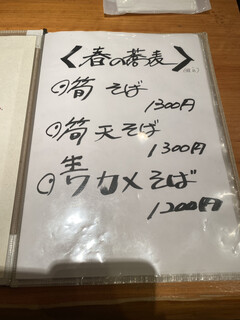 〈春の蕎麦〉
筍そば
1300円
筍天そば
1300円
生ワカメそば
1200円